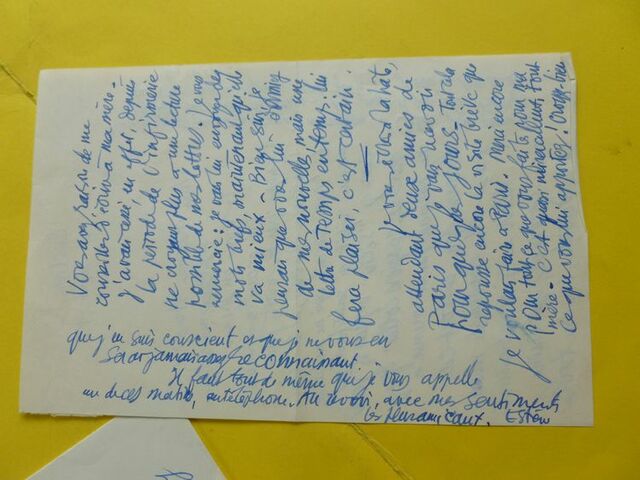 Vous avez raison de me
conseiller d'écrire à ma mère.
J'avais cessé, en effet, depuis
la période de l'infirmerie
ne croyant plus à une lecture
possible de mes lettres. Je vous
remercie : je vais lui envoyer des
mots brefs, maintenant qu'elle
va mieux - Bien sûr, je
pensais que vous lui
de mes nouvelles mais une
lettre de temps en temps lui
fera plaisir, c'est certain.
à la hâte,
attendant deux amies de
Paris que je vais revoir
pour quelques jours. Tout cela
repousse encore la visite brève que
je voulais faire à Paris. Merci encore
pour tout ce que vous faites pour ma
mère - C'est quasi miraculeux, tout
ce que vous lui apportez !
que j'en suis conscient et que je ne vous en
serai jamais assez reconnaissant.
Il faut tout de même que je vous appelle
un de ces matins, au téléphone. Au revoir, avec mes sentiments
les plus amicaux.